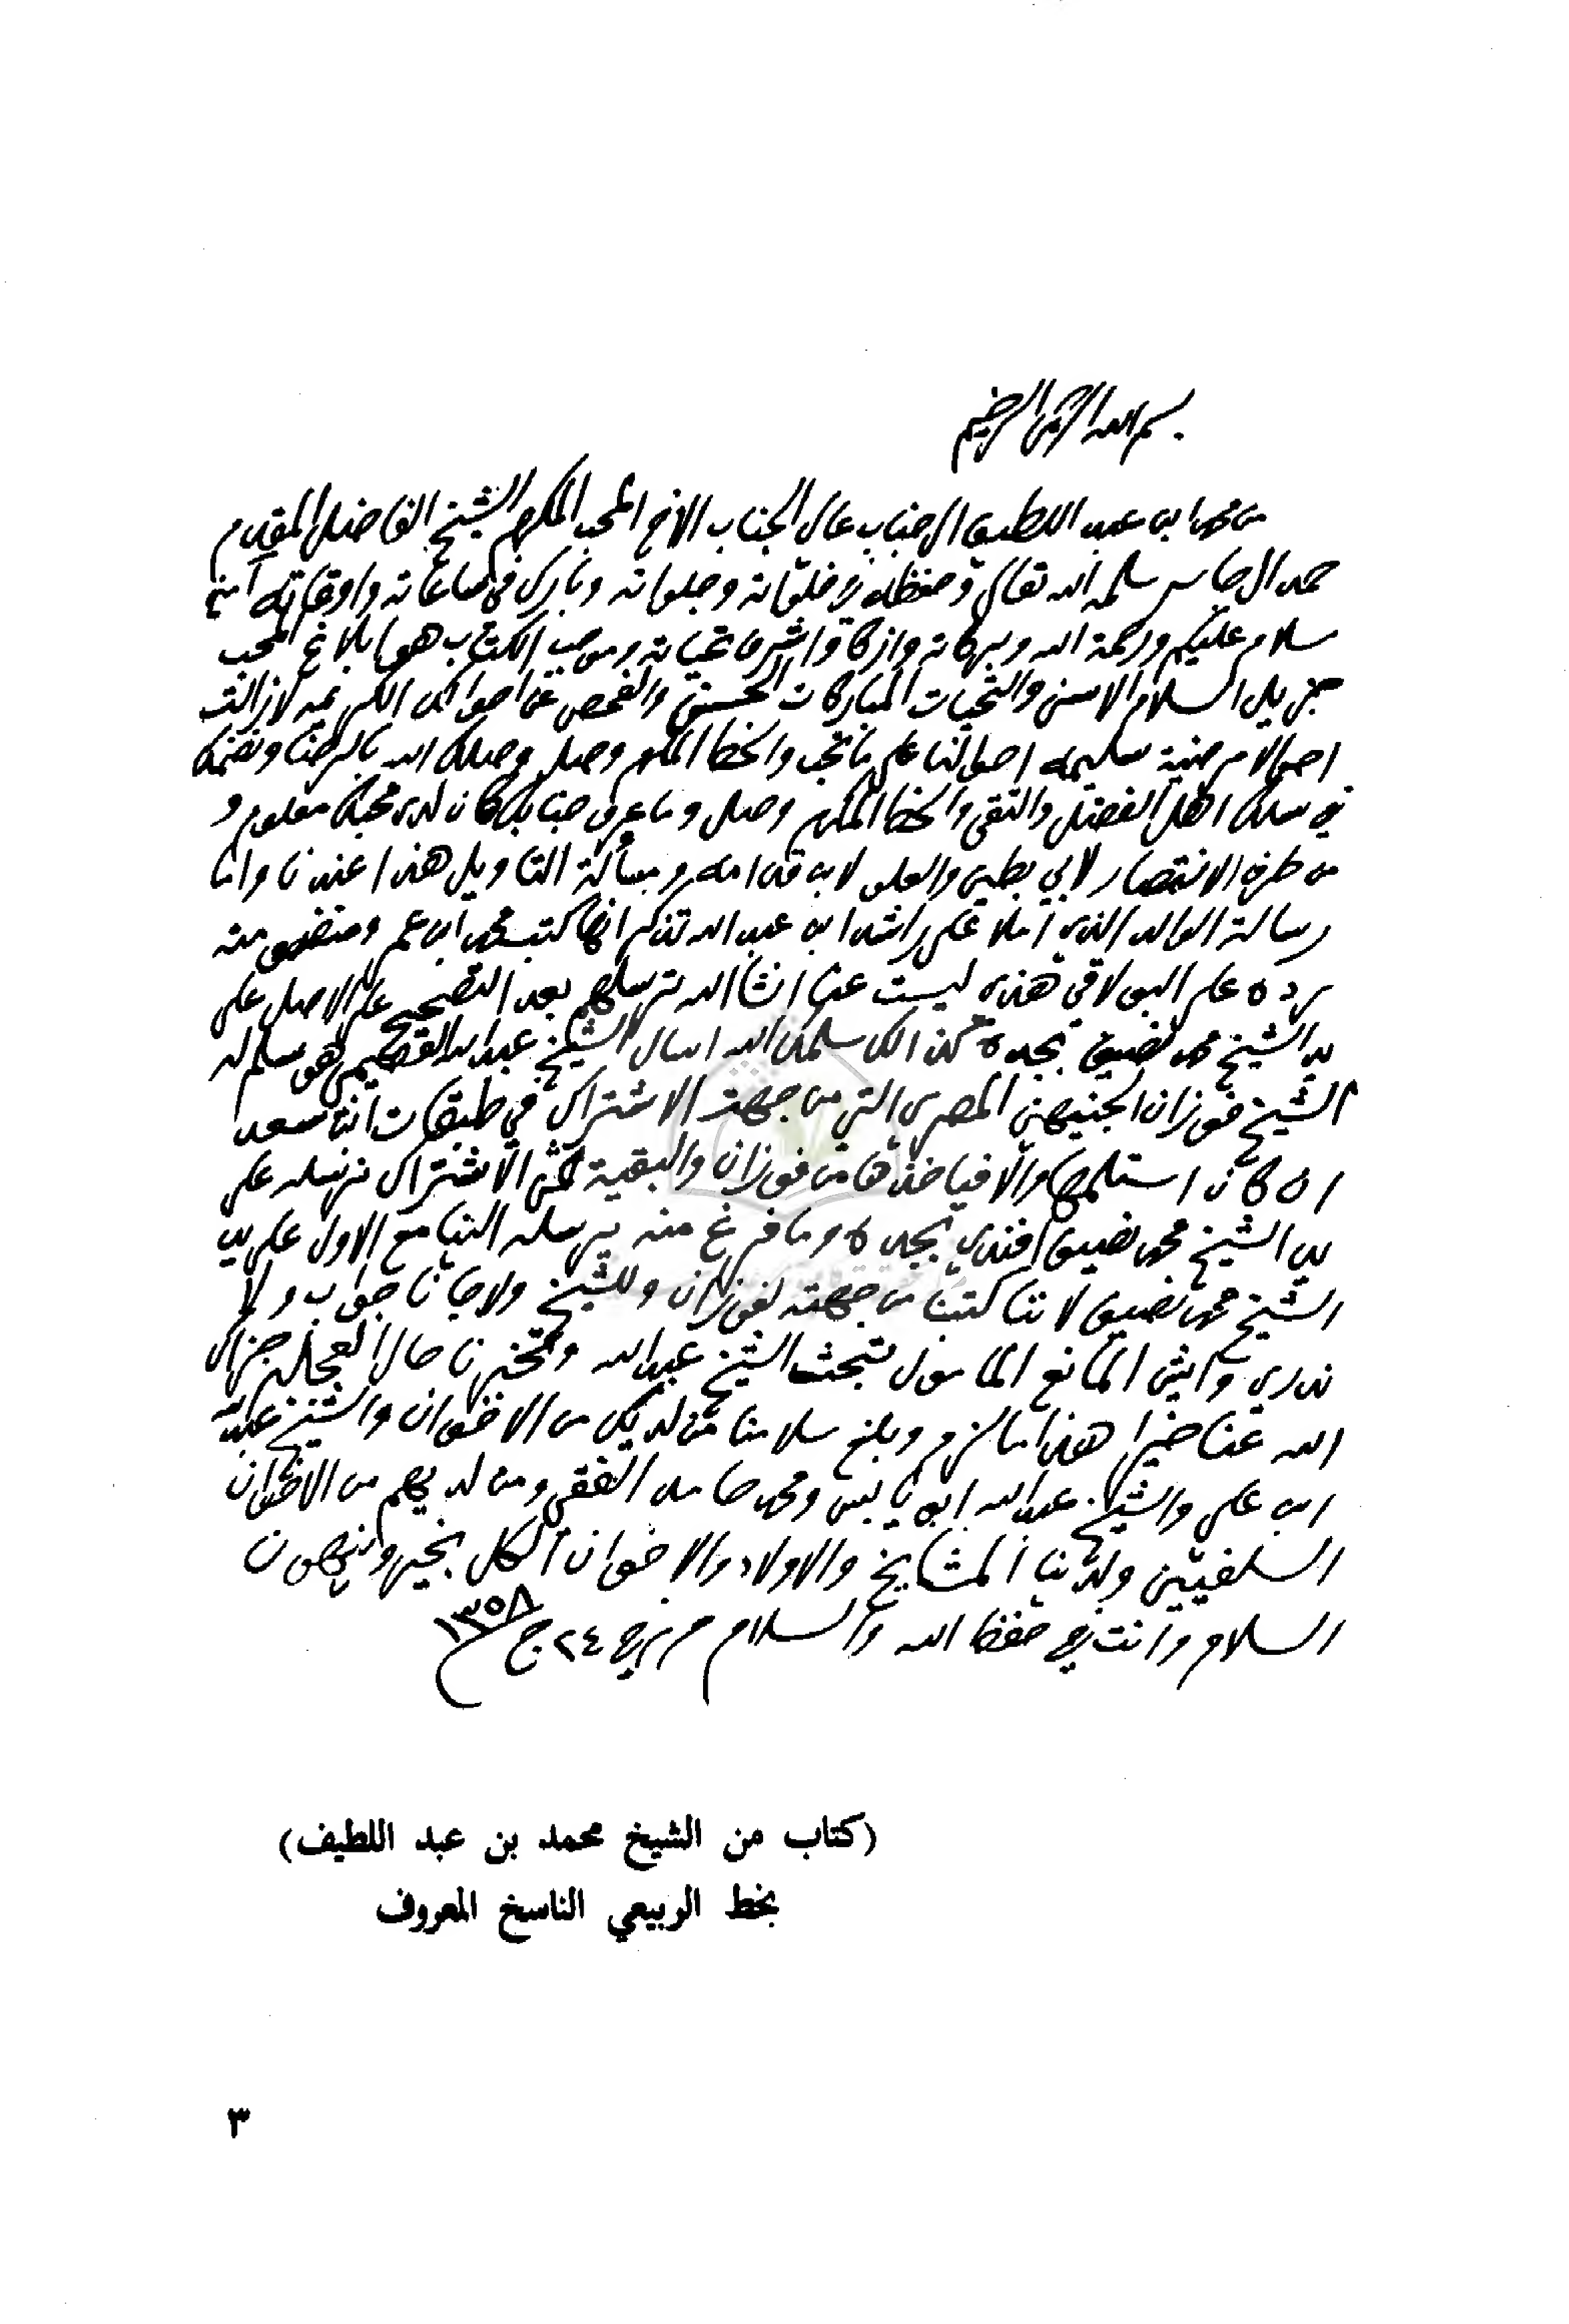 بسم الله الرحمن الرحيم
من محمد ابن عبد اللطيف الى جناب عال الجناب الاخ المحب المكرم الشيخ الفاضل المقدم
حمد الجاسر سلمه الله تعالى وحفظه في خلواته وجلواته وبارك في ساعاته واوقاته آمين
سلام عليكم ورحمة الله وبركاته وازكا واشرف تحياته وموجب الكتاب هو ابلاغ المحب
جزيل السلام الاسنى والتحيات المباركات الحسنى والفحص عن احوالك الكريمه لازالت
احوالا مرضية سليمه احوالنا على ما تحب والخط المكرم وصل وصلك الله بالرضا ونضمك
في سلك اهل الفضل والتقى والخط المكرم وصل وما عرف جنابك كان لدى محبك معلوم و
من طرف الانتصار لابي بطين والعلو لابن قدامه ومسألة التاويل هذا عندنا واما
رسالة الوالد الذي املا على راشد ابن عبد الله تذكر انها كتب محمد ابن عمر ومنقول منه
رده على البولاقي هذي ليست عندنا انشا الله ترسلهم بعد التصحيح على الاصل على
يد الشيخ محمد نصيف بجده كذالك سلمك الله اسال الشيخ عبد الله القصيمي هو سلم له
الشيخ فوزان الجنيهين المصري التي من جهت الاشتراك في طبقات ابن سعد
ان كان استلمها والا فياخذها من فوزان والبقية الاشتراك نرسله على
يد الشيخ محمد نصيف افندي بجده وما فرغ منه يرسله الينا مع الاول على يد
الشيخ محمد نصيف لاننا كتبنا من جهته لفوزان وللشيخ ولا جانا جواب ولا
ندري وايش المانع المامول تبحث الشيخ عبد الله وتخبرنا حال العجاله جزاك
الله عنا خيرا هذا ما لزم وبلغ سلامنا من لديك من الاخوان والشيخ عبد الله
ابن علي والشيخ عبد الله ابن يابس ومحمد حامد الفقي ومن لديهم من الاخوان
السلفيين ولدينا المشايخ والاولاد والاخوان الكل بخير وينهون
السلام وانت في حفظ الله والسلام حرر في ٢٤ ج ١٣٥٨
(كتاب من الشيخ محمد بن عبد اللطيف)
بخط الربيعي الناسخ المعروف
٣